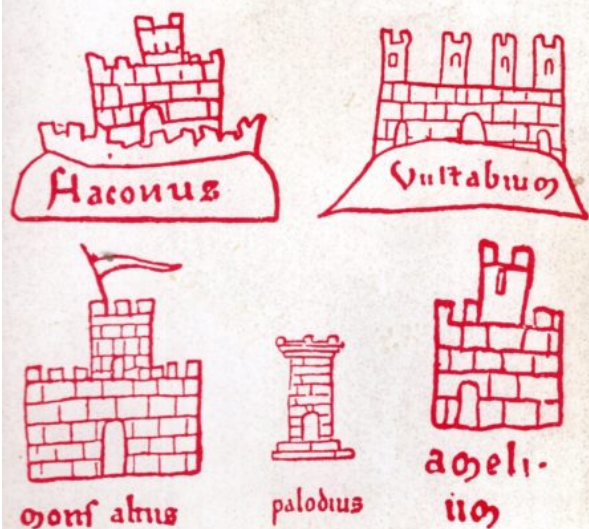 Flaconus
Vultabium
monſ altus
palodius
ameli-
um